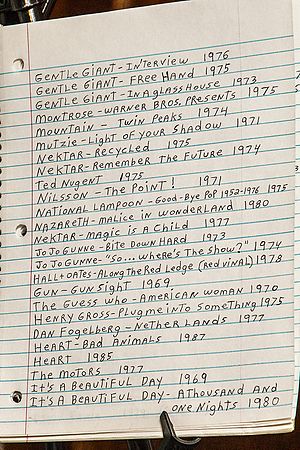 GENTLE GIANT - INTERVIEW 1976
GENTLE GIANT - FREE HAND 1975
GENTLE GIANT - IN A GLASS HOUSE 1973
MONTROSE - WARNER BROS. PRESENTS 1975
MOUNTAIN - TWIN PEAKS 1974
MUTZIE - LIGHT OF YOUR SHADOW 1971
NEKTAR - RECYCLED 1975
NEKTAR - REMEMBER THE FUTURE 1974
TED NUGENT 1975
NILSSON - THE POINT! 1971
NATIONAL LAMPOON - GOOD-BYE POP 1952-1976 1975
NAZARETH - MALICE IN WONDERLAND 1980
NEKTAR - MAGIC IS A CHILD 1977
JO JO GUNNE - BITE DOWN HARD 1973
JO JO GUNNE - "SO... WHERE'S THE SHOW?" 1974
HALL + OATES - ALONG THE RED LEDGE (RED VINAL) 1978
GUN - GUNSIGHT 1969
THE GUESS WHO - AMERICAN WOMAN 1970
HENRY GROSS - PLUG ME INTO SOMETHING 1975
DAN FOGELBERG - NETHER LANDS 1977
HEART - BAD ANIMALS 1987
HEART 1985
THE MOTORS 1977
IT'S A BEAUTIFUL DAY 1969
IT'S A BEAUTIFUL DAY - A THOUSAND AND
ONE NIGHTS 1980